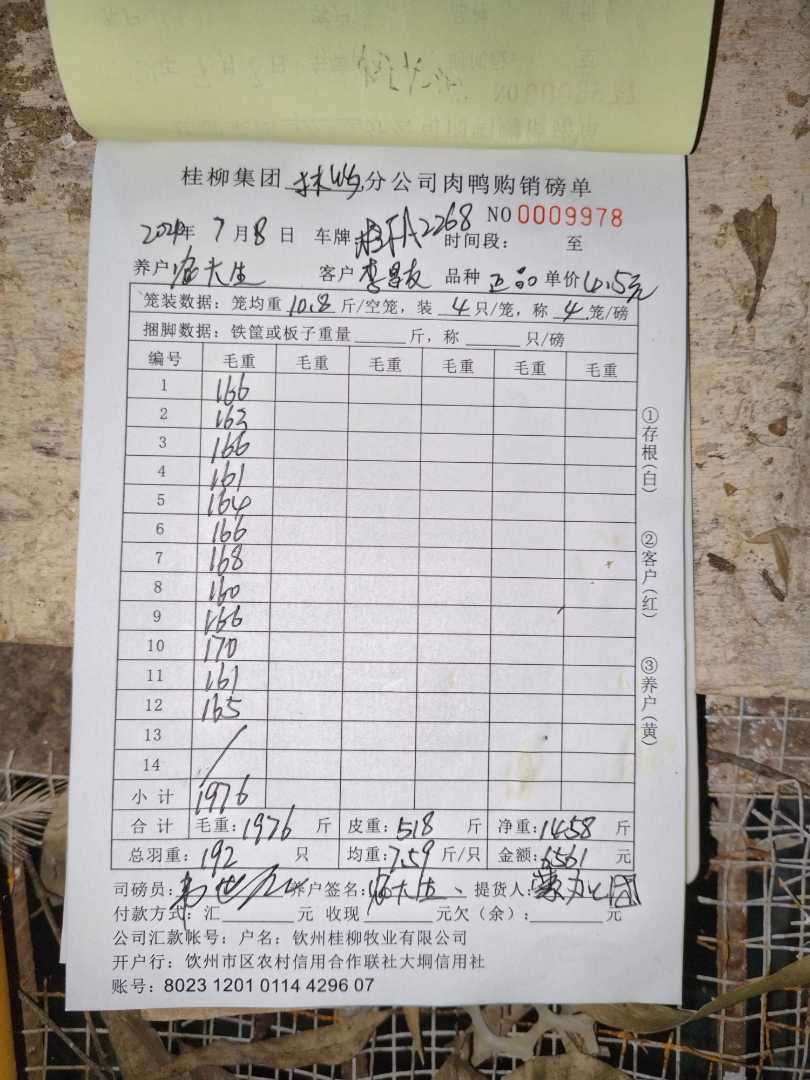 桂柳集团 分公司肉鸭购销磅单
NO 0009978
2024年 7月8日 车牌 A2268 时间段： 至
养户 大生 客户 李昌友 品种 正品 单价 4.5元
笼装数据：笼均重 10.8 斤/空笼，装 4 只/笼，称 4 笼/磅
捆脚数据：铁筐或板子重量____斤，称____只/磅
编号 毛重 毛重 毛重 毛重 毛重 毛重
1 166
2 163
3 166
4 161
5 164
6 166
7 168
8 160
9 166
10 170
11 161
12 165
13 /
14
小计 1976
合计 毛重：1976 斤 皮重：518 斤 净重：1458 斤
总羽重：192 只 均重：7.59 斤/只 金额：6561 元
司磅员： 养户签名： 大生 提货人：
付款方式：汇____元 收现____元欠（余）：____元
公司汇款帐号：户名：钦州桂柳牧业有限公司
开户行：钦州市区农村信用合作联社大垌信用社
账号：8023 1201 0114 4296 07
①存根（白）
②客户（红）
③养户（黄）